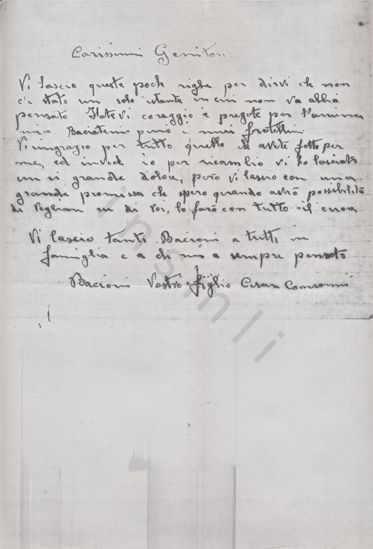 Carissimi Genitori
Vi lascio queste poche righe per dirvi che non
c'è stato un solo istante in cui non va abbia
pensato State vi coraggio e pregate per l'anima
mia Baciatemi pure i miei fratellini
Vi ringrazio per tutto quello che avete fatto per
me, ed invece io per ricambio vi ho lasciato
un si grande dolore, però vi lascio con una
grande promessa che spero quando avrò possibilità
di Vegliare su di Voi, lo farò con tutto il cuore
Vi lascio tanti Bacioni a tutti in
famiglia e a chi mi a sempre pensato
Bacioni Vostro figlio Cesare
insmli